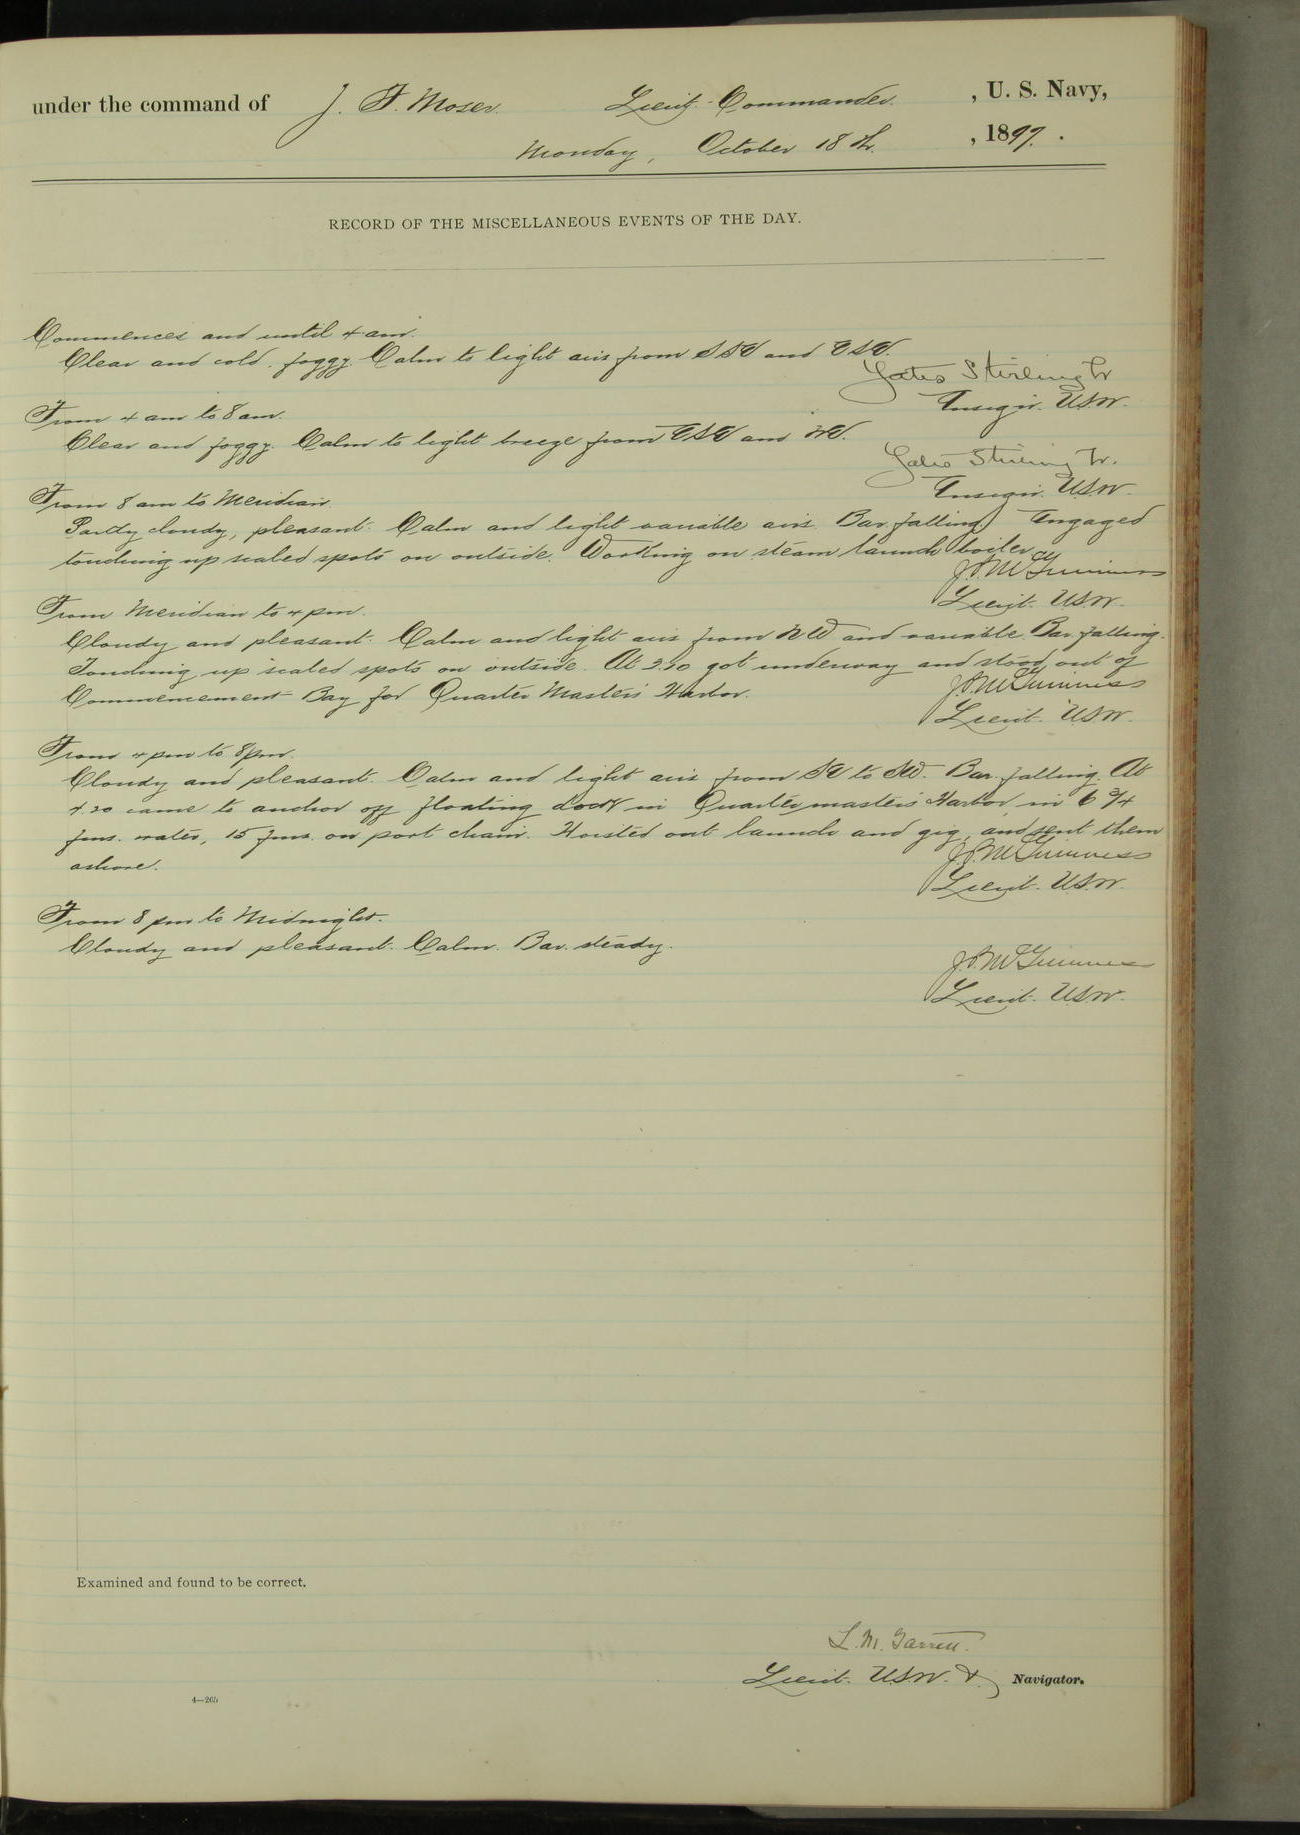 under the command of J. F. Moser Lieut. Commander , U. S. Navy,
Monday, October 18th. , 1897.
RECORD OF THE MISCELLANEOUS EVENTS OF THE DAY.
Commences and until 4 am.
Clear and cold, foggy. Calm to light airs from SSE and ESE.
Yates Stirling Jr
Ensign. U.S.N.
From 4 am to 8 am.
Clear and foggy. Calm to light breeze from ESE and
Yates Stirling Jr.
Ensign. U.S.N.
From 8 am to Meridian.
Partly cloudy, pleasant. Calm and light variable airs. Bar. falling. Engaged
touching up scaled spots on outside. Working on steam launch boiler.
J.P. McGuinness
Lieut. U.S.N.
From Meridian to 4 pm.
Cloudy and pleasant. Calm and light airs from NW and variable. Bar. falling.
Touching up scaled spots on outside. At 2.20 got underway and stood out of
Commencement Bay for Quarter Masters Harbor.
J.P. McGuinness
Lieut. U.S.N.
From 4 pm to 8 pm.
Cloudy and pleasant. Calm and light airs from SE to SW. Bar. falling. At
4.20 came to anchor off floating dock in Quartermasters Harbor in 6 3/4
fms. water, 15 fms. on port chain. Hoisted out launch and gig, and sent them
ashore.
J.P. McGuinness
Lieut. U.S.N.
From 8 pm to Midnight.
Cloudy and pleasant. Calm. Bar. steady.
J.P. McGuinness
Lieut. U.S.N.
Examined and found to be correct.
L. M. Garrett.
Lieut. U.S.N. & Navigator.
4—265